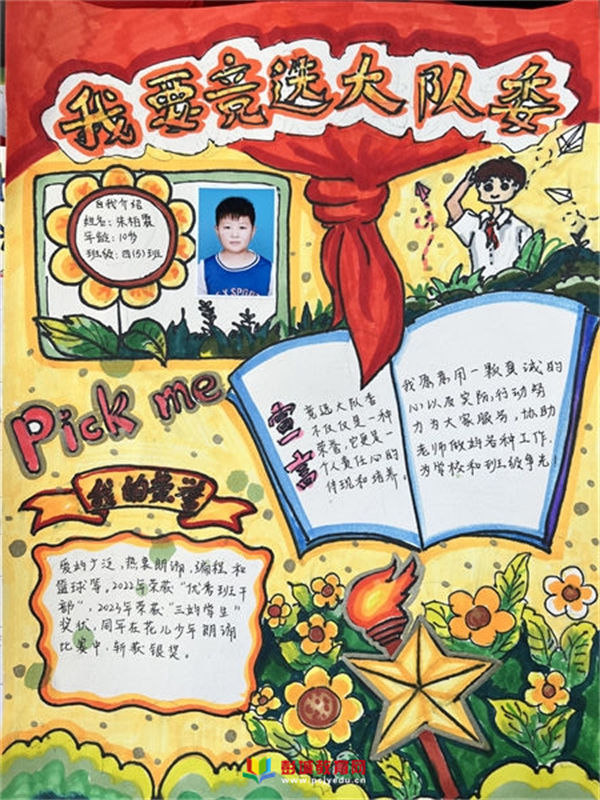 我要竞选大队委
自我介绍
姓名:朱柏霖
年龄:10岁
班级:四(5)班
Pick me
宣言
竞选大队委
不仅仅是一种
荣誉,它更是一
个人责任心的
体现和培养。
我愿意用一颗真诚的
心以及实际行动努
力为大家服务,协助
老师做好各种工作.
为学校和班级争光!
我的荣誉
爱好广泛,热衷朗诵,编程和
篮球等。2022年荣获“优秀班干
部”,2023年荣获“三好学生”
奖状,同年在花儿少年朗诵
比赛中,斩获银奖。
彭城教育网
www.pcjyedu.cn